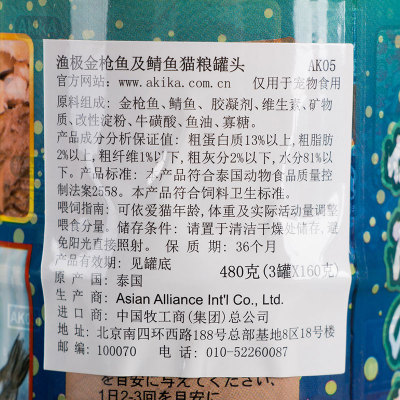 渔极金枪鱼及鲭鱼猫粮罐头 AK05
官方网站:www.akika.com.cn 仅用于宠物食用
原料组成: 金枪鱼、鲭鱼、胶凝剂、维生素、矿物
质、改性淀粉、牛磺酸、鱼油、寡糖。
产品成分分析保证值: 粗蛋白质13%以上,粗脂肪
2%以上,粗纤维1%以下,粗灰分2%以下,水分81%以
下。产品标准: 本产品符合泰国动物食品质量控
制法案2558。本产品符合饲料卫生标准。
喂饲指南: 可依爱猫年龄,体重及实际活动量调整
喂食分量。储存条件: 请置于清洁干燥处储存,避
免阳光直接照射。 保 质 期: 36个月
产品有效期: 见罐底 480克(3罐X160克)
原 产 国: 泰国
生 产 商: Asian Alliance Int'l Co., Ltd.
进 口 商: 中国牧工商(集团)总公司
地 址: 北京南四环西路188号总部基地8区18号楼
邮 编: 100070 电 话: 010-52260087
を目安に与えてください。
1日2~3回を目安に